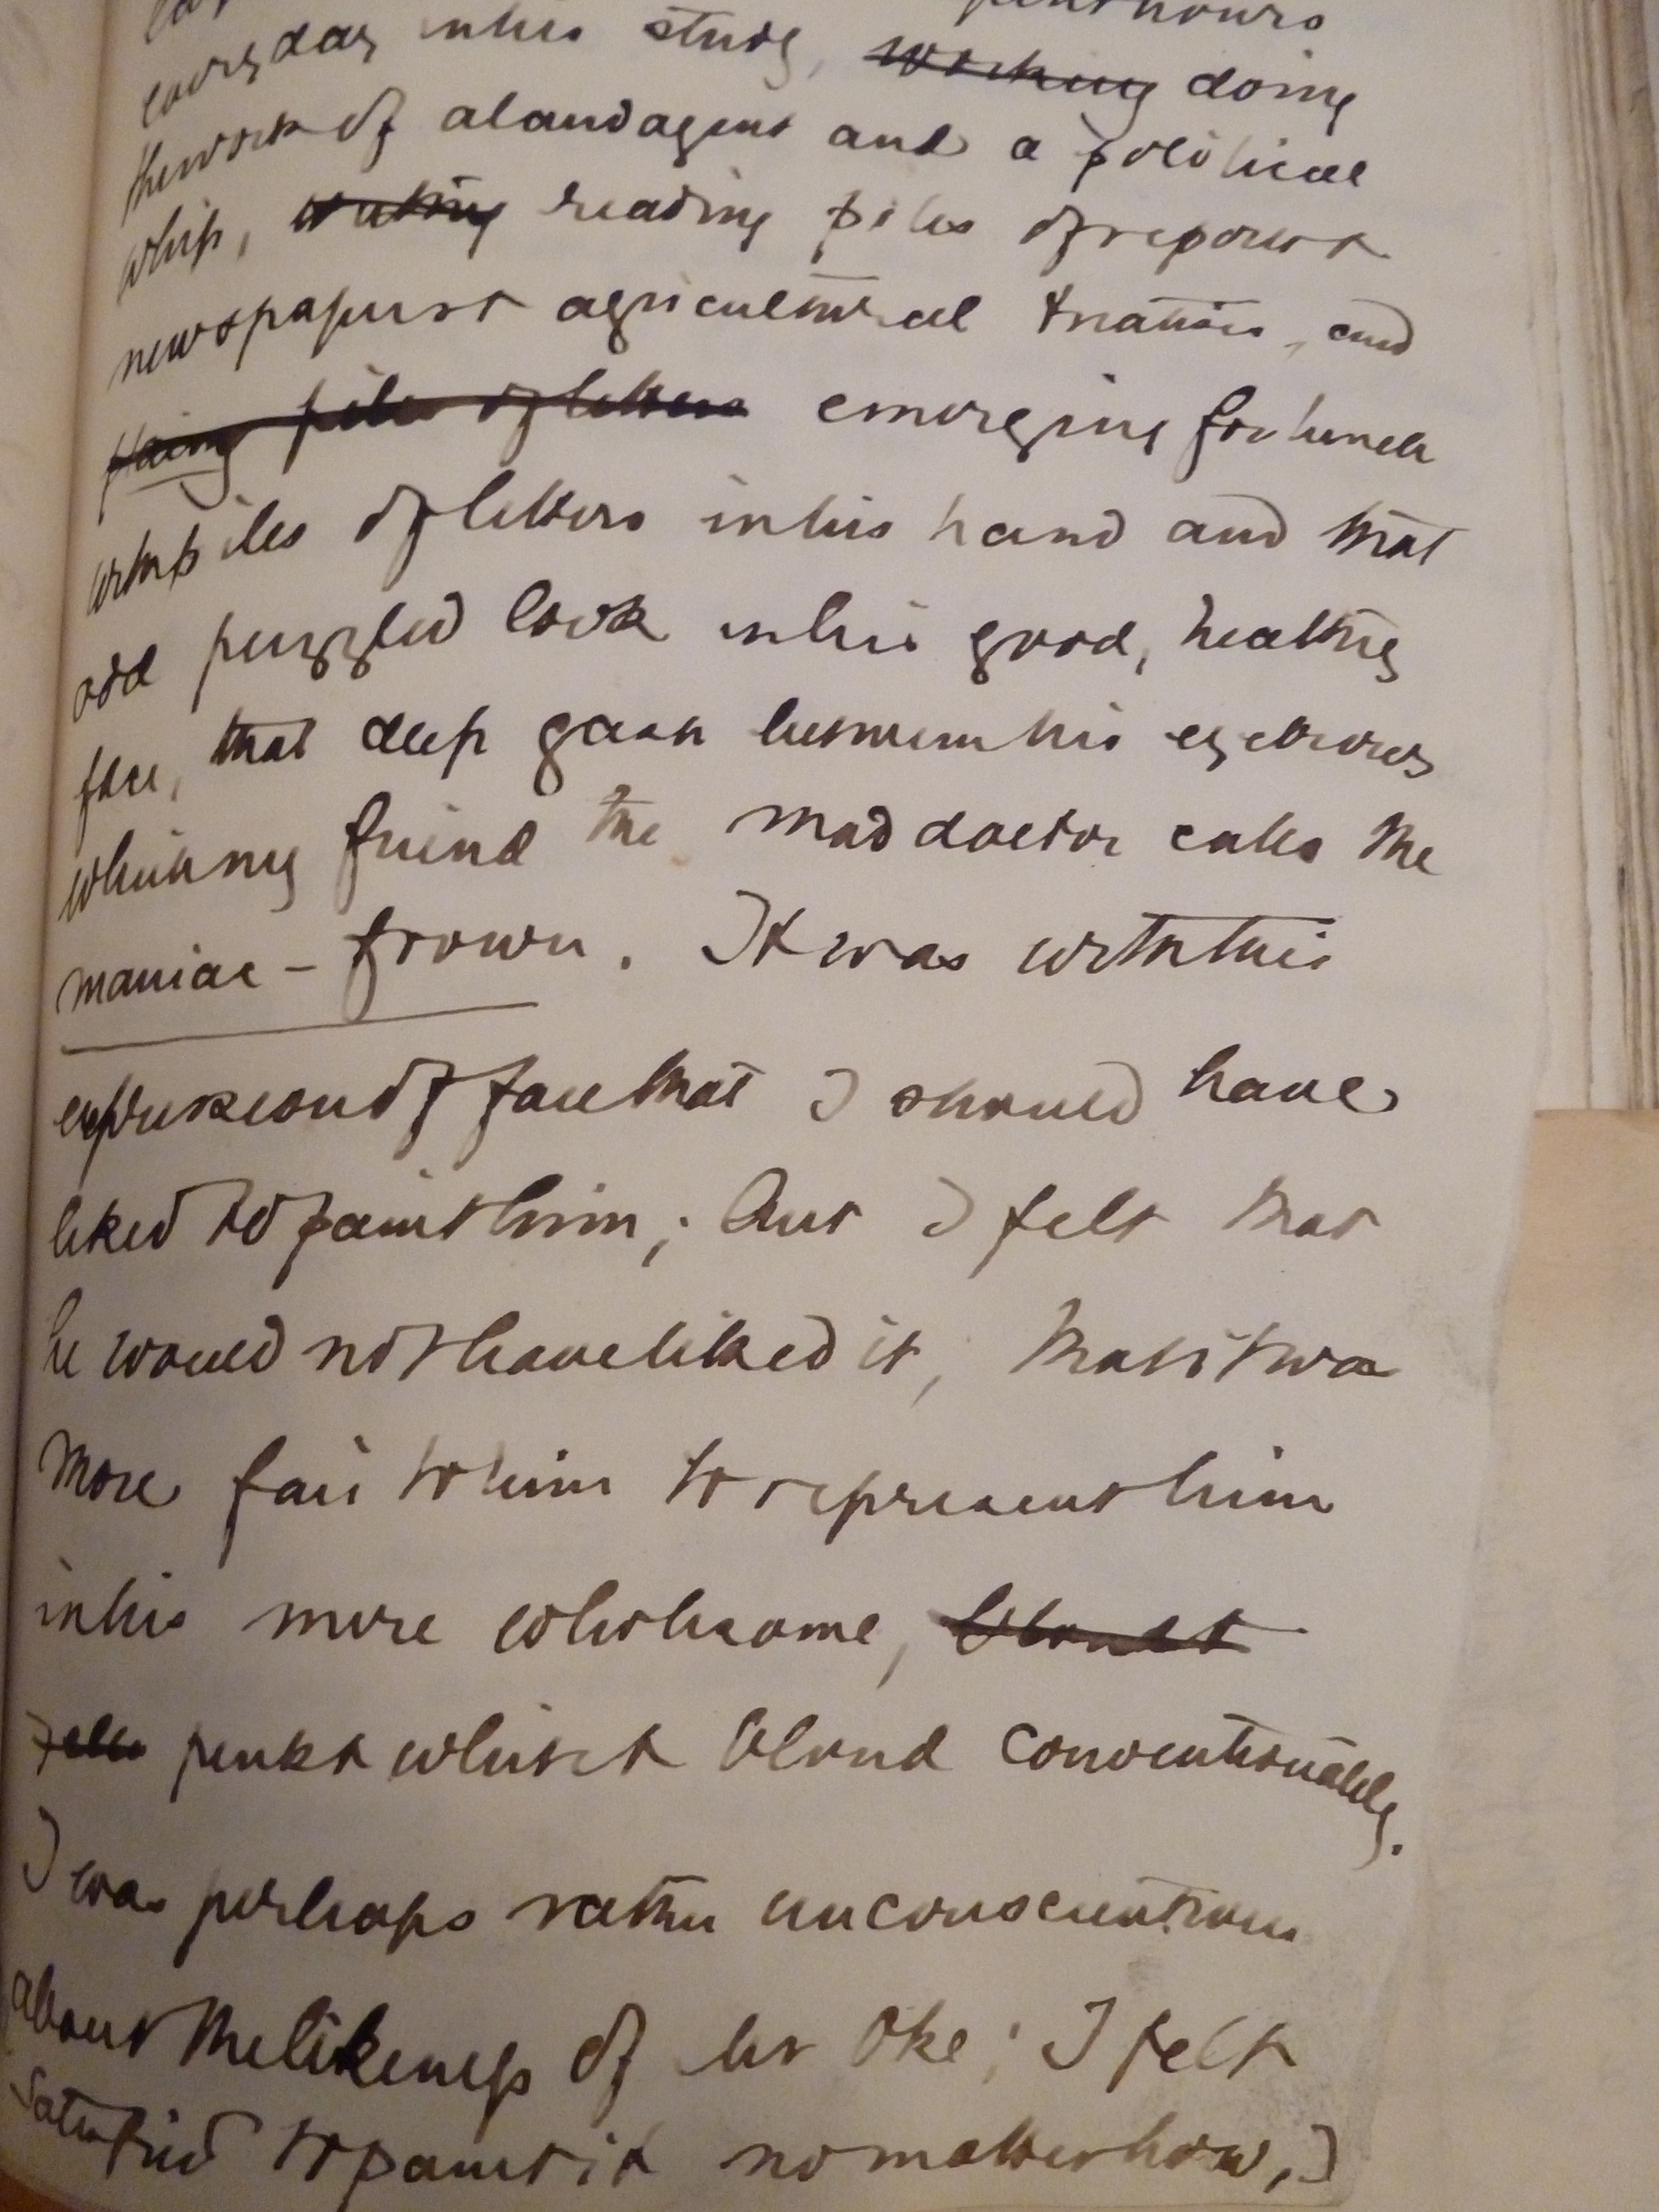 hours
every day in his study, ~~working~~ doing
the work of a land agent and a political
whip, ~~writing~~ reading piles of reports &
newspapers & agricultural treatises, and
piles of letters emerging for lunch
with piles of letters in his hand and that
odd puzzled look in his good, healthy
face, that deep gash between his eyebrows
which my friend the mad doctor calls the
maniac - frown. It was with this
expression of face that I should have
liked to paint him; but I felt that
he would not have liked it, that it was
more fair to him to represent him
in his mere wholesome,
pink & white & blond conventionality.
I was perhaps rather unconscientious
about the likeness of Mr Oke; I felt
satisfied to paint it no matter how, I